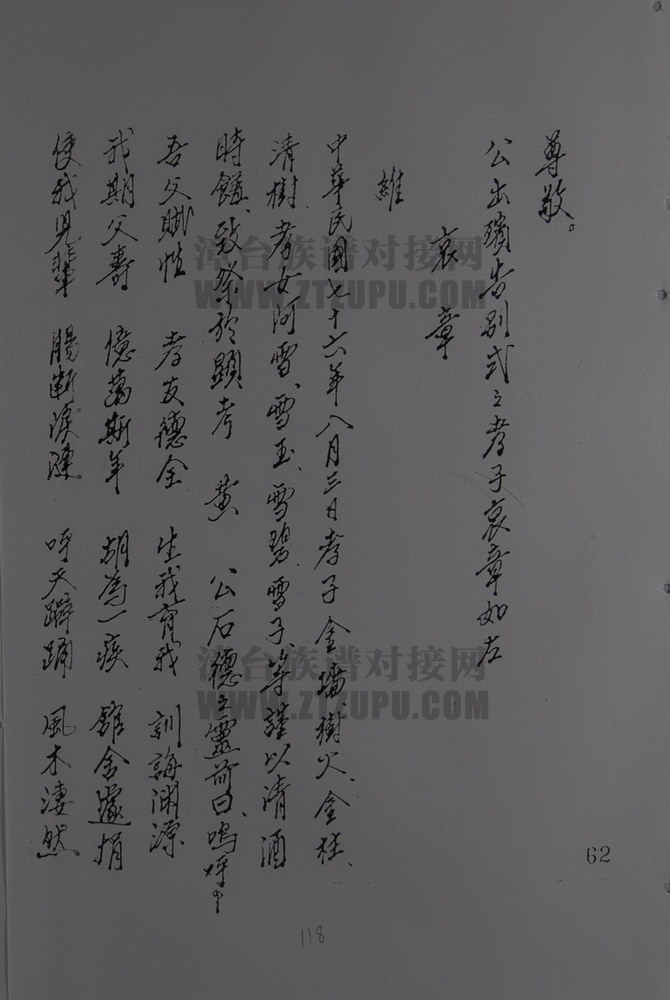 尊敬。
公出殯告別式之孝子哀章如左
哀章
維
中華民國七十六年八月三日孝子金璠、樹火、金柱、
清樹、孝女阿雪、雪玉、雪碧、雪子、等謹以清酒
時饈、致祭於顯考 黃 公石德之靈前曰、嗚呼！
吾父賦性 孝友德全 生我育我 訓誨淵源
我期父壽 億萬斯年 胡為一疾 館舍遽捐
使我兒輩 腸斷淚漣 呼天躃踊 風木淒然
62
118
漳台族谱对接网
WWW.ZTZUPU.COM
漳台族谱对接网
WWW.ZTZUPU.COM